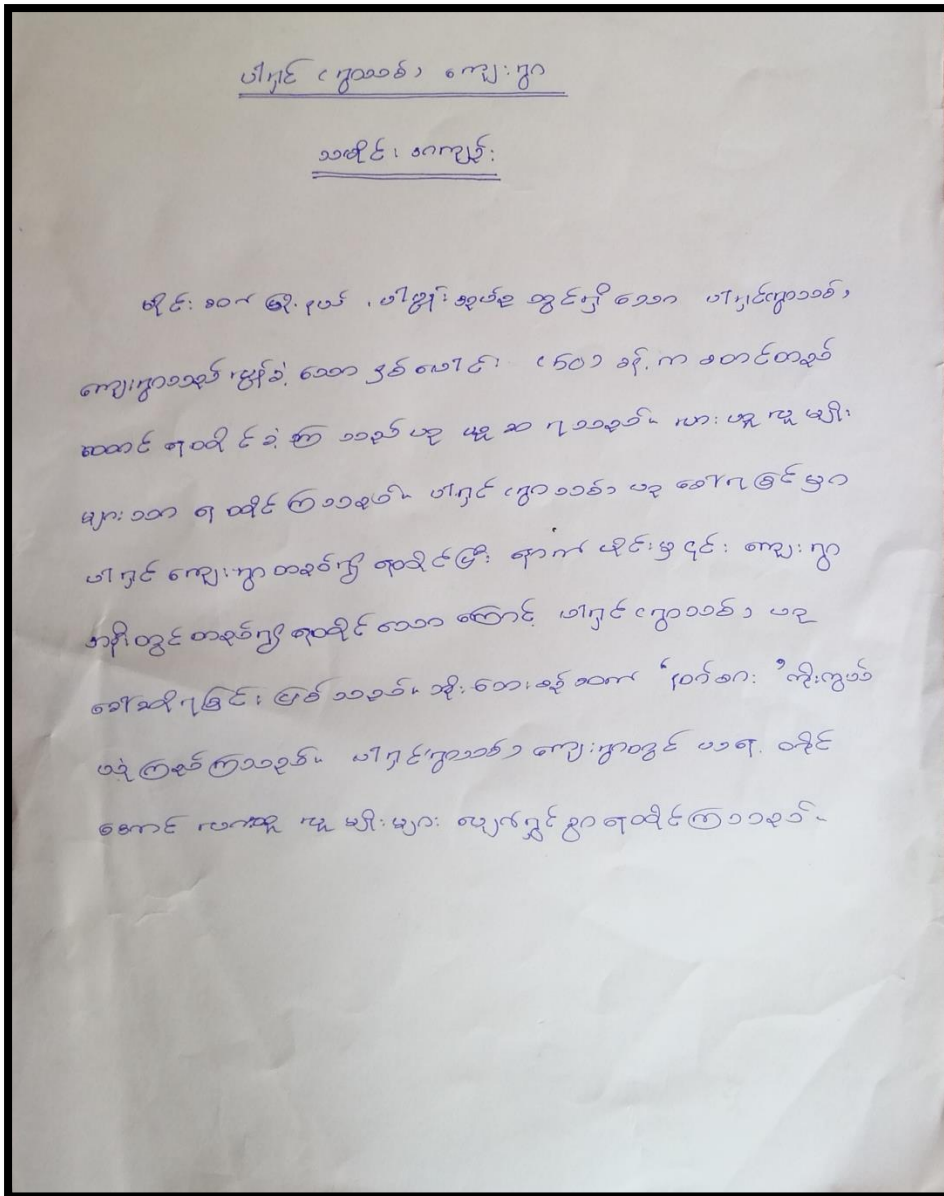 ပါရှင် (ရွာသစ်) ကျေးရွာ
သမိုင်း စာကျဉ်း
မိုင်းခတ်မြို့နယ်၊ ပါမွန်းအုပ်စု တွင်ရှိသော ပါရှင်(ရွာသစ်)
ကျေးရွာသည် လွန်ခဲ့သော နှစ်ပေါင်း (၅၀) ခန့်က စတင်တည်
ထောင် နေထိုင်ခဲ့ကြသည်ဟု ယူဆရသည်။ လားဟူလူမျိုး
များသာ နေထိုင်ကြသည်။ ပါရှင်(ရွာသစ်)ဟု ခေါ်ရခြင်းမှာ
ပါရှင်ကျေးရွာ တည်ရှိနေထိုင်ပြီး နောက်ပိုင်းမှ ၎င်းကျေးရွာ
အနီးတွင်တည်ရှိ နေထိုင်သောကြောင့် ပါရှင်(ရွာသစ်)ဟု
ခေါ်ဆိုရခြင်း ဖြစ်သည်။ ဘိုးဘေးစဉ်ဆက် ကိုးကွယ်
ယုံကြည်ကြသည်။ ပါရှင်(ရွာသစ်)ကျေးရွာတွင် ယနေ့ တိုင်
အောင် လားဟူ လူမျိုးများ ပျော်ရွှင်စွာ နေထိုင်ကြသည်။